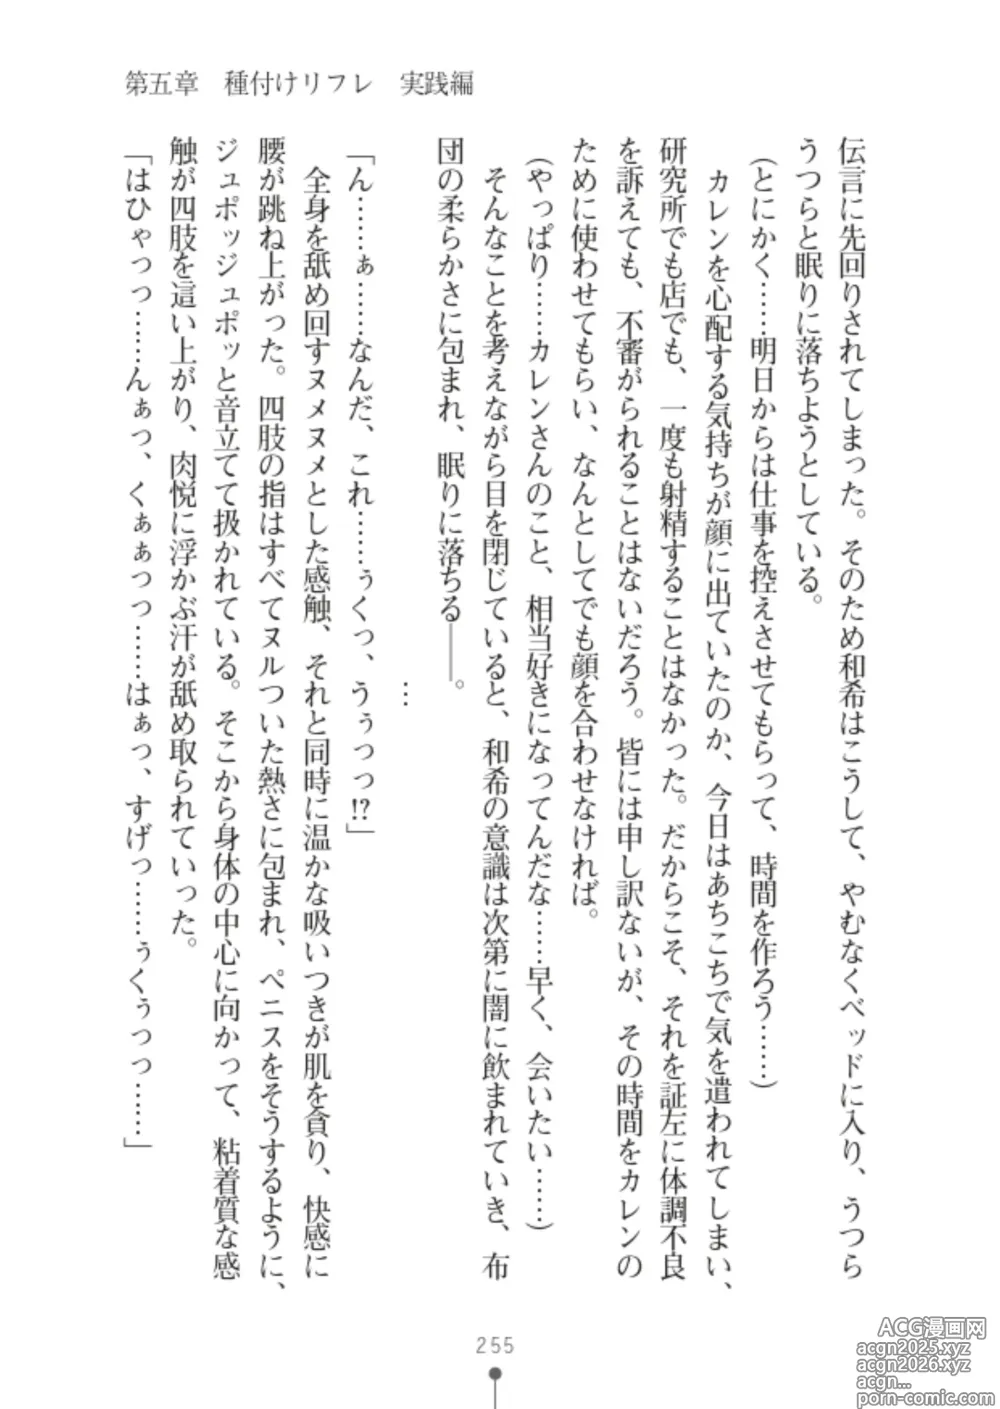 第五章　種付けリフレ　実践編
伝言に先回りされてしまった。そのため和希はこうして、やむなくベッドに入り、うつら
うつらと眠りに落ちようとしている。
（とにかく……明日からは仕事を控えさせてもらって、時間を作ろう……）
カレンを心配する気持ちが顔に出ていたのか、今日はあちこちで気を遣われてしまい、
研究所でも店でも、一度も射精することはなかった。だからこそ、それを証左に体調不良
を訴えても、不審がられることはないだろう。皆には申し訳ないが、その時間をカレンの
ために使わせてもらい、なんとしてでも顔を合わせなければ。
（やっぱり……カレンさんのこと、相当好きになってんだな……早く、会いたい……）
そんなことを考えながら目を閉じていると、和希の意識は次第に闇に飲まれていき、布
団の柔らかさに包まれ、眠りに落ちる――。
…
「ん……ぁ……なんだ、これ……ぅくっ、うぅっっ!?」
全身を舐め回すヌメヌメとした感触、それと同時に温かな吸いつきが肌を貪り、快感に
腰が跳ね上がった。四肢の指はすべてヌルついた熱さに包まれ、ペニスをそうするように、
ジュポッジュポッと音立てて扱かれている。そこから身体の中心に向かって、粘着質な感
触が四肢を這い上がり、肉悦に浮かぶ汗が舐め取られていった。
「はひゃっっ……んぁっ、くぁぁっっ……はぁっ、すげっ……ぅくぅっっ……」
255
ACG漫画网
acgn2025.xyz
acgn2026.xyz
acgn...
porn-comic.com